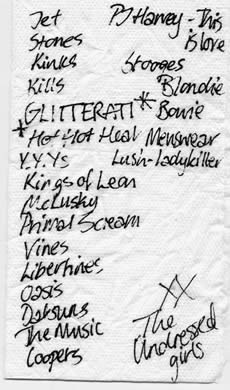 Jet
Stones
Kinks
Kills
GLITTERATI *
* Hot Hot Heat
Y.Y.Ys
Kings of Leon
McLusky
Primal Scream
Vines
Libertines
Oasis
Datsuns
The Music
Coopers
PJ Harvey - This
is love
Stooges
Blondie
Bowie
Menswear
Lush - Ladykiller
XX
The
Undressed
girls